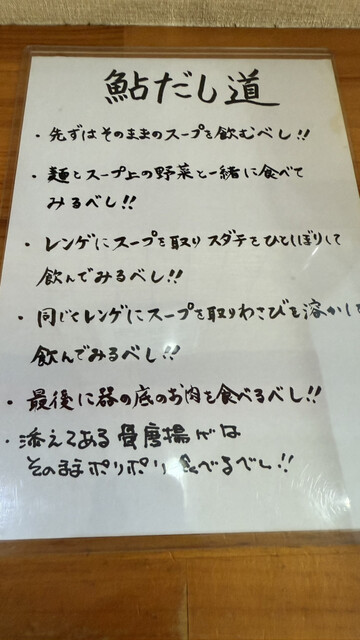 鮎だし道
・先ずはそのままのスープを飲むべし!!
・麺とスープ上の野菜と一緒に食べて
みるべし!!
・レンゲにスープを取りスダチをひとしぼりして
飲んでみるべし!!
・同じくレンゲにスープを取りわさびを溶かして
飲んでみるべし!!
・最後に器の底のお肉を食べるべし!!
・添えてある骨唐揚げは
そのままポリポリ食べるべし!!